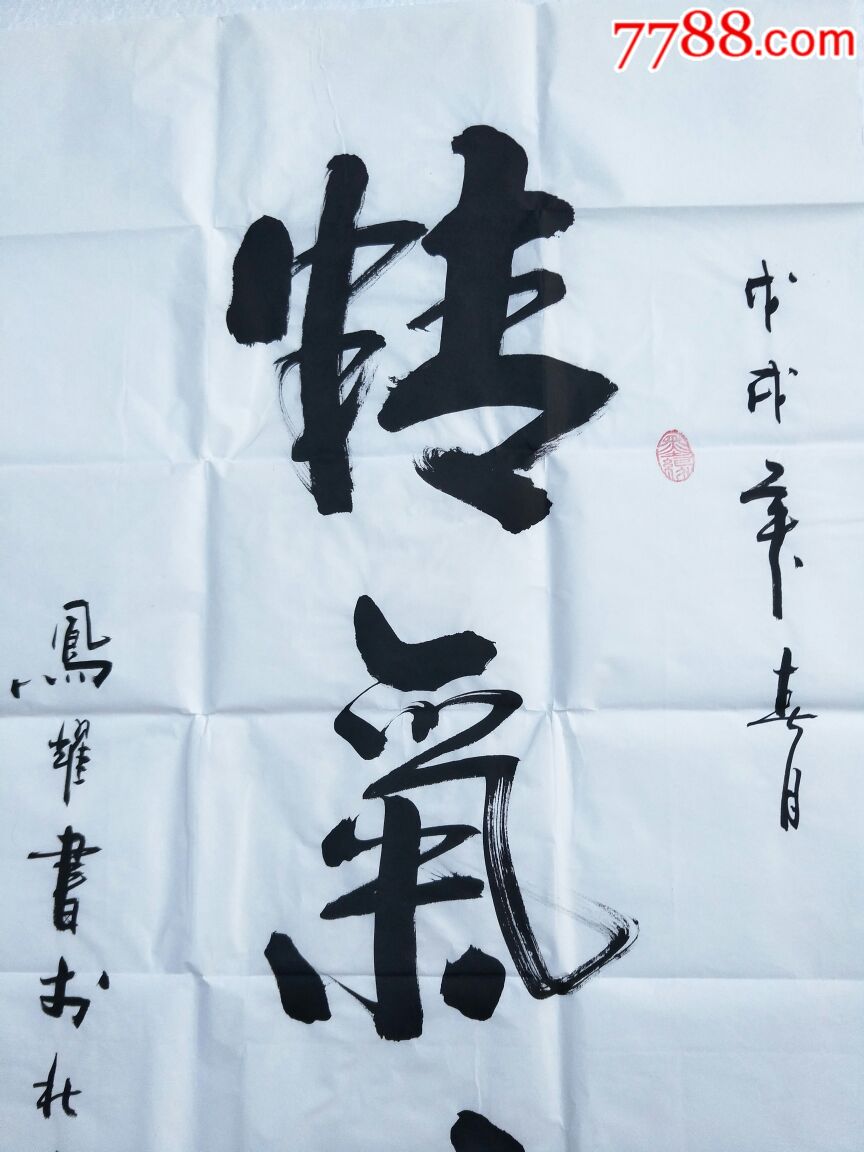 7788.com
戊戌年春月
精氣
鳳耀書於北